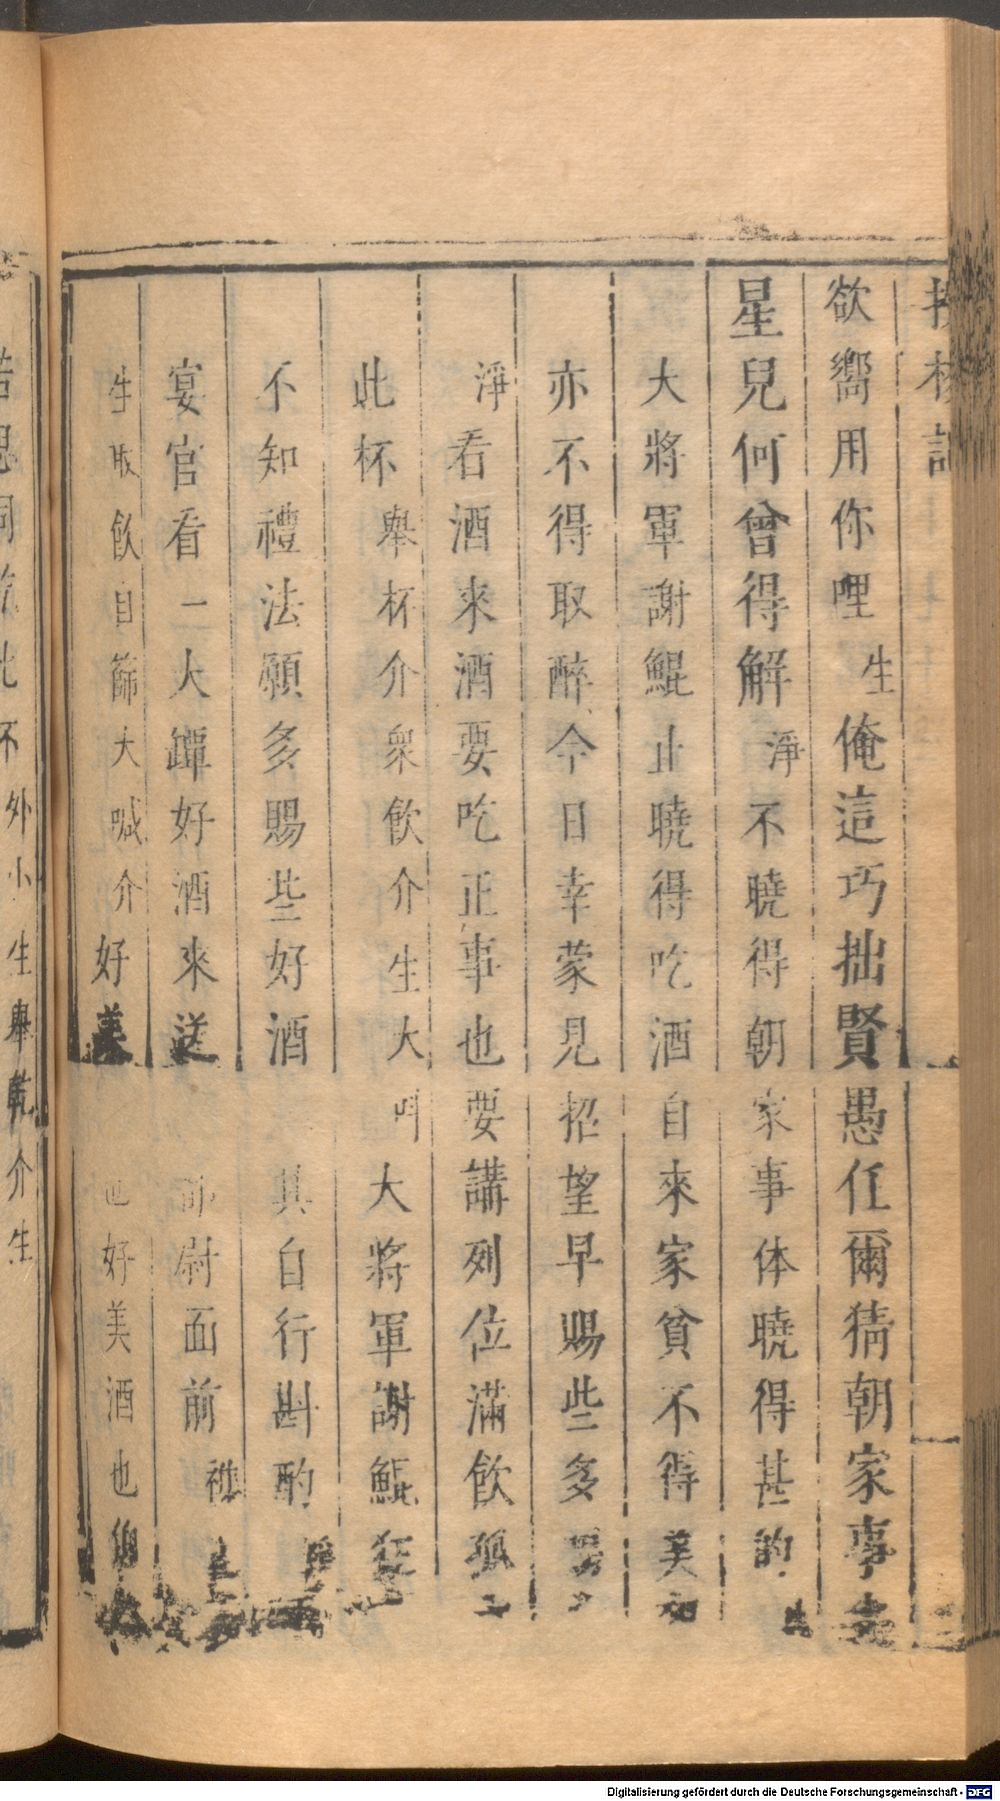 欲嚮用你哩生俺這巧拙賢愚任爾猜朝家事
星兒何曾得解淨不曉得朝家事体曉得甚的
大將軍謝鯤止曉得吃酒自來家貧不得美
亦不得取醉今日幸蒙見招望早賜些多
淨看酒來酒要吃正事也要講列位滿飲
此杯舉杯介衆飲介生大叫大將軍謝鯤
不知禮法願多賜些好酒其自行斟酌
宴官看二大罈好酒來送尉面前
生取飲自篩大喊介好美好美酒也
外小生舉乾介生
Digitalisierung gefördert durch die Deutsche Forschungsgemeinschaft - DFG